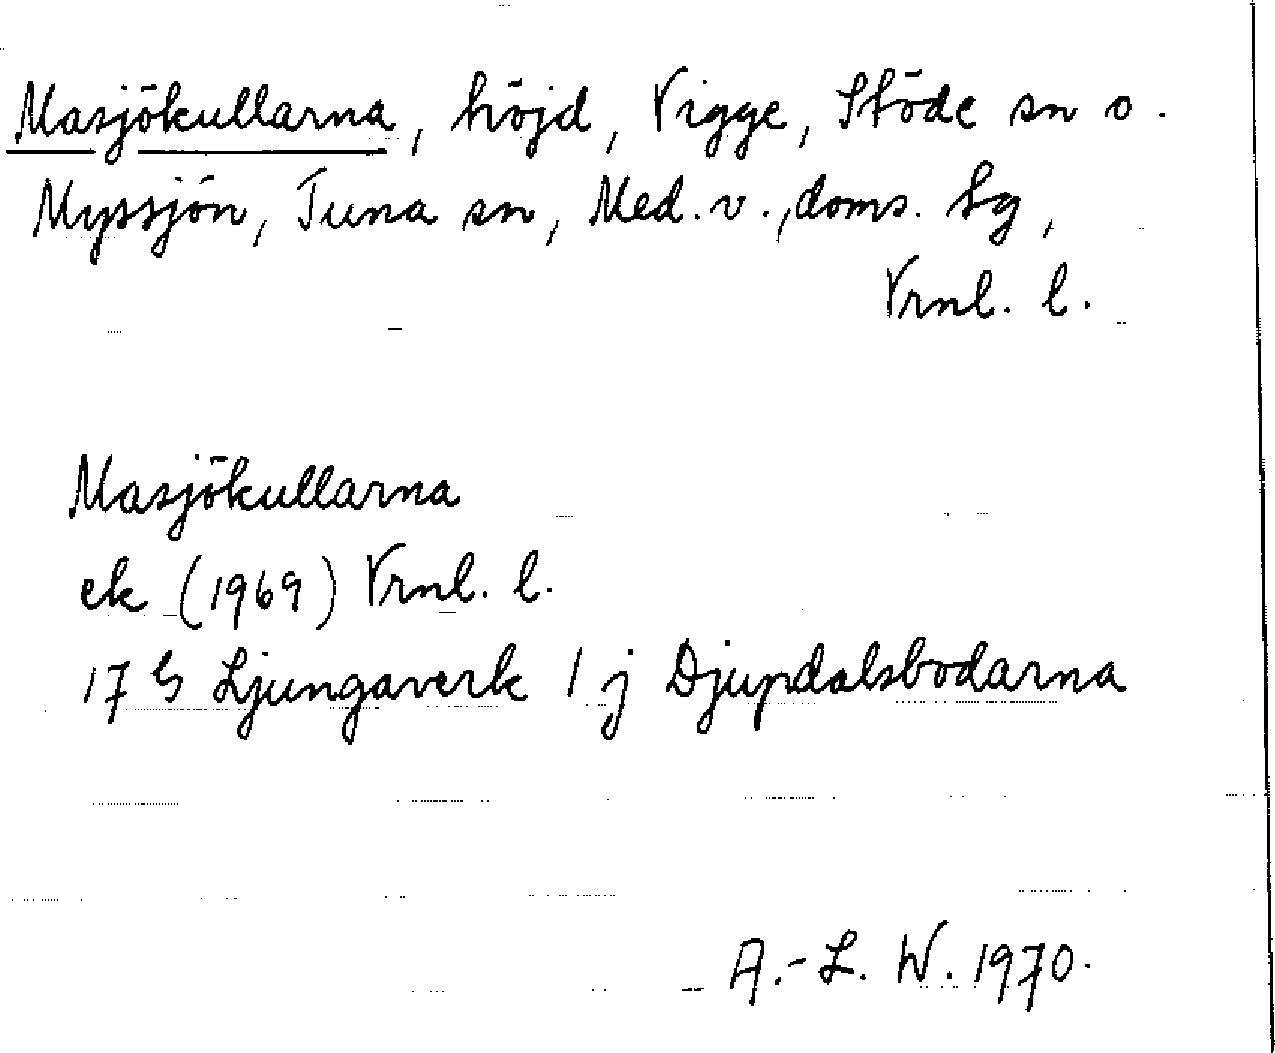 Masjökullarna, höjd, Vigge, Stöde sn o.
Myssjön, Tuna sn, Med. v., doms. hg,
Vrnl. l.
Masjökullarna
ek (1969) Vrnl. l.
17 G Ljungaverk 1 j Djupdalsbodarna
A.-L. W. 1970.